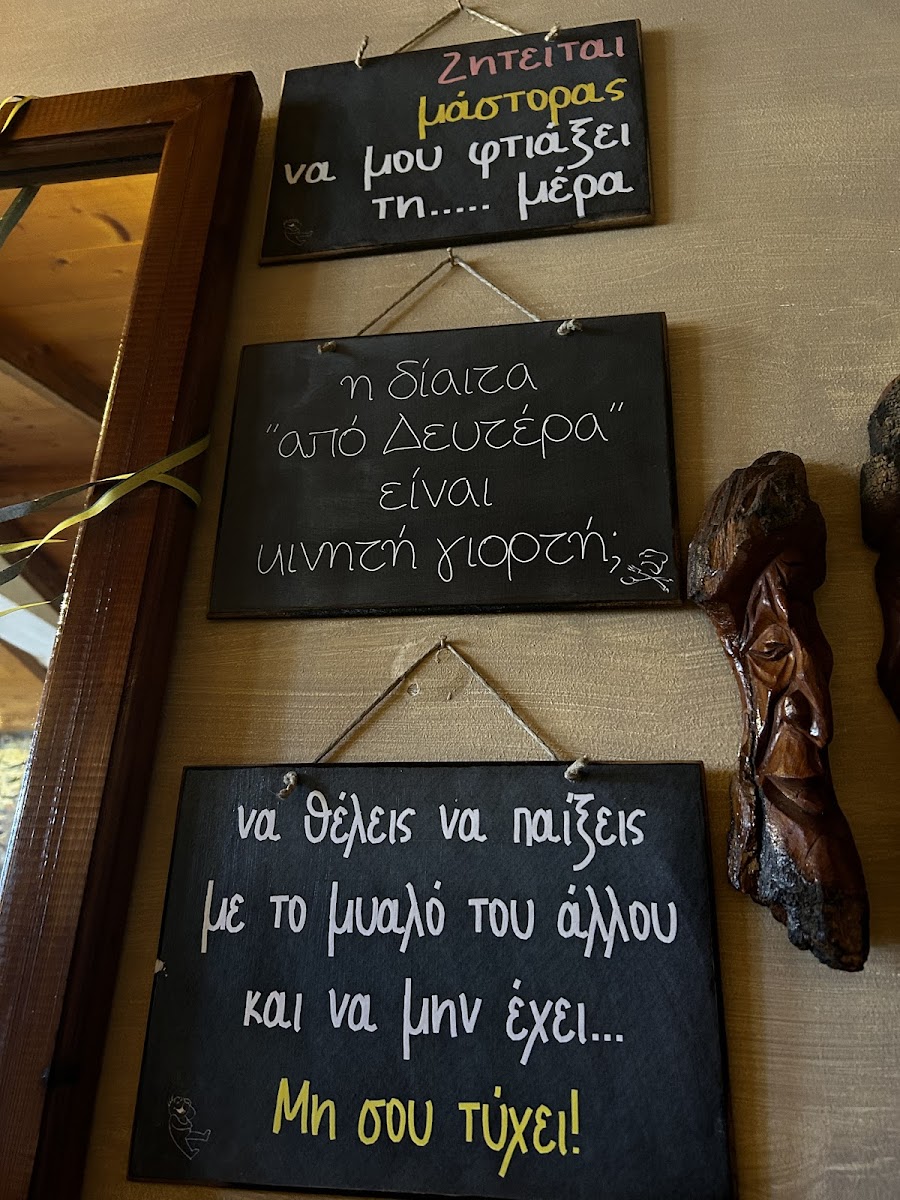 Ζητείται
μάστορας
να μου φτιάξει
τη..... μέρα
η δίαιτα
“από Δευτέρα”
είναι
κινητή γιορτή;
να θέλεις να παίξεις
με το μυαλό του άλλου
και να μην έχει...
Μη σου τύχει!